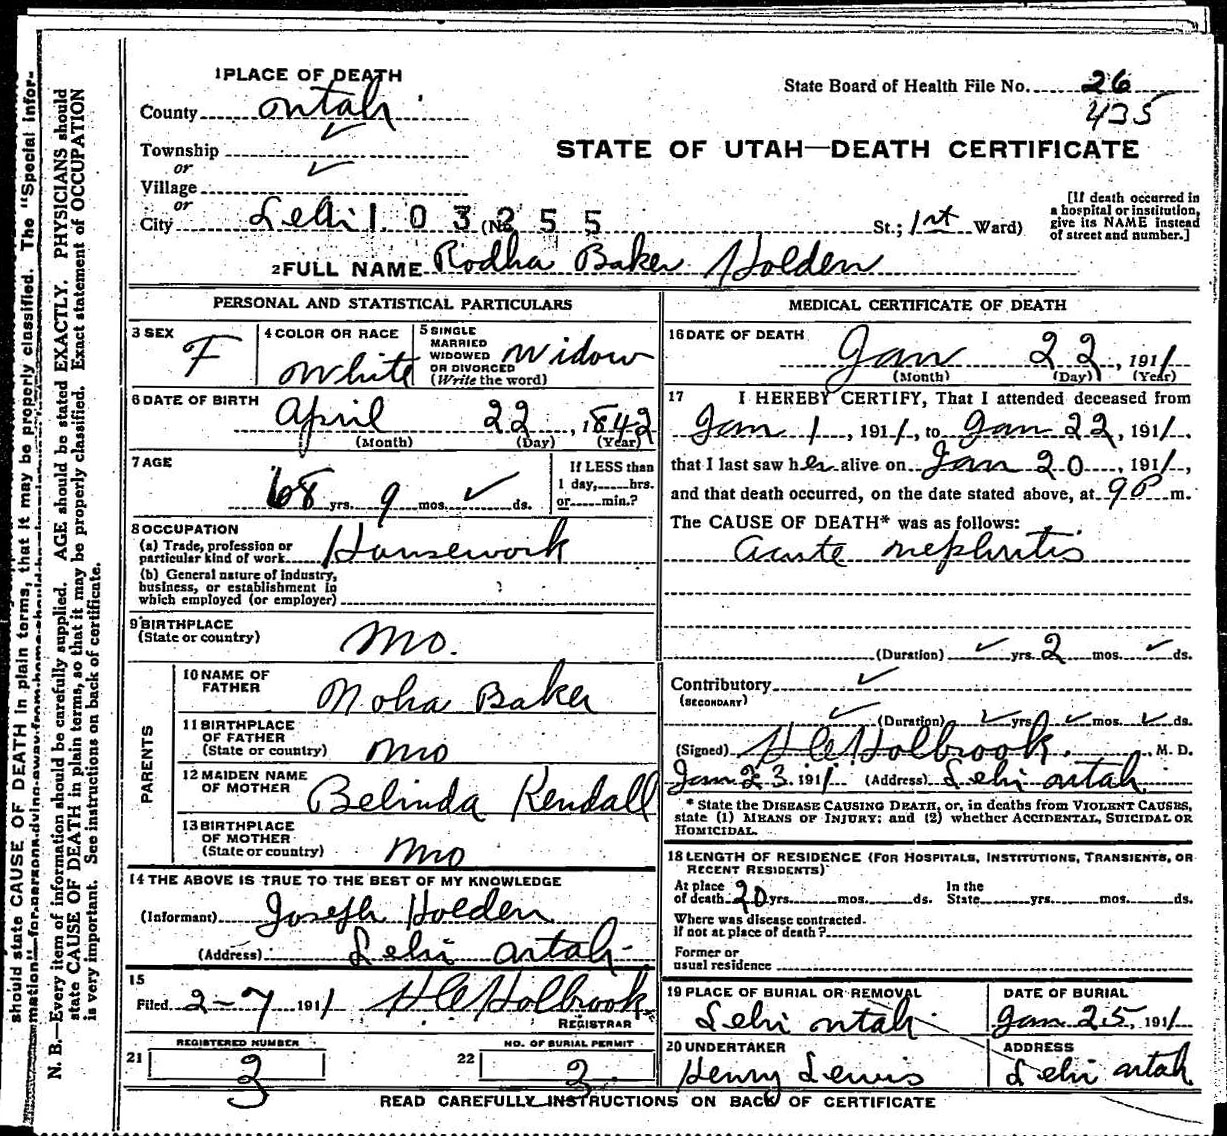 1 PLACE OF DEATH
County Utah
State Board of Health File No. 26
435
Township
or
Village
or
City Lehi 103255 (No. St.; 1st Ward)
STATE OF UTAH—DEATH CERTIFICATE
[If death occurred in a hospital or institution, give its NAME instead of street and number.]
2 FULL NAME Rodha Baker Holden
PERSONAL AND STATISTICAL PARTICULARS
3 SEX F
4 COLOR OR RACE White
5 SINGLE MARRIED WIDOWED OR DIVORCED (Write the word) Widow
6 DATE OF BIRTH April 22, 1842
(Month) (Day) (Year)
7 AGE 68 yrs. 9 mos. ✓ ds.
If LESS than 1 day, hrs. or min.?
8 OCCUPATION
(a) Trade, profession or particular kind of work Housework
(b) General nature of industry, business, or establishment in which employed (or employer)
9 BIRTHPLACE
(State or country) Mo.
PARENTS
10 NAME OF FATHER Noha Baker
11 BIRTHPLACE OF FATHER (State or country) Mo
12 MAIDEN NAME OF MOTHER Belinda Kendall
13 BIRTHPLACE OF MOTHER (State or country) Mo
14 THE ABOVE IS TRUE TO THE BEST OF MY KNOWLEDGE
(Informant) Joseph Holden
(Address) Lehi Utah
15
Filed 2-7 1911 H C Holbrook
REGISTRAR
REGISTERED NUMBER
21 3
NO. OF BURIAL PERMIT
22 3
MEDICAL CERTIFICATE OF DEATH
16 DATE OF DEATH Jan 22, 1911
(Month) (Day) (Year)
17 I HEREBY CERTIFY, That I attended deceased from
Jan 1, 1911, to Jan 22, 1911,
that I last saw her alive on Jan 20, 1911,
and that death occurred, on the date stated above, at 9 P m.
The CAUSE OF DEATH* was as follows:
Acute nephritis
(Duration) ✓ yrs. 2 mos. ✓ ds.
Contributory ✓
(SECONDARY)
✓ (Duration) ✓ yrs. ✓ mos. ✓ ds.
(Signed) H C Holbrook, M. D.
Jan 23, 1911 (Address) Lehi Utah
* State the DISEASE CAUSING DEATH, or, in deaths from VIOLENT CAUSES,
state (1) MEANS OF INJURY; and (2) whether ACCIDENTAL, SUICIDAL OR
HOMICIDAL.
18 LENGTH OF RESIDENCE (FOR HOSPITALS, INSTITUTIONS, TRANSIENTS, OR
RECENT RESIDENTS)
At place of death 20 yrs. mos. ds. In the State yrs. mos. ds.
Where was disease contracted.
If not at place of death?
Former or
usual residence
19 PLACE OF BURIAL OR REMOVAL Lehi Utah
DATE OF BURIAL Jan 25, 1911
20 UNDERTAKER Henry Lewis
ADDRESS Lehi Utah
READ CAREFULLY INSTRUCTIONS ON BACK OF CERTIFICATE
N. B.—Every item of information should be carefully supplied. AGE should be stated EXACTLY. PHYSICIANS should
state CAUSE OF DEATH in plain terms, so that it may be properly classified. Exact statement of OCCUPATION
is very important. See instructions on back of certificate.
should state CAUSE OF DEATH in plain terms, that it may be properly classified. The "Special Infor-
mation" for persons dying away from home should be